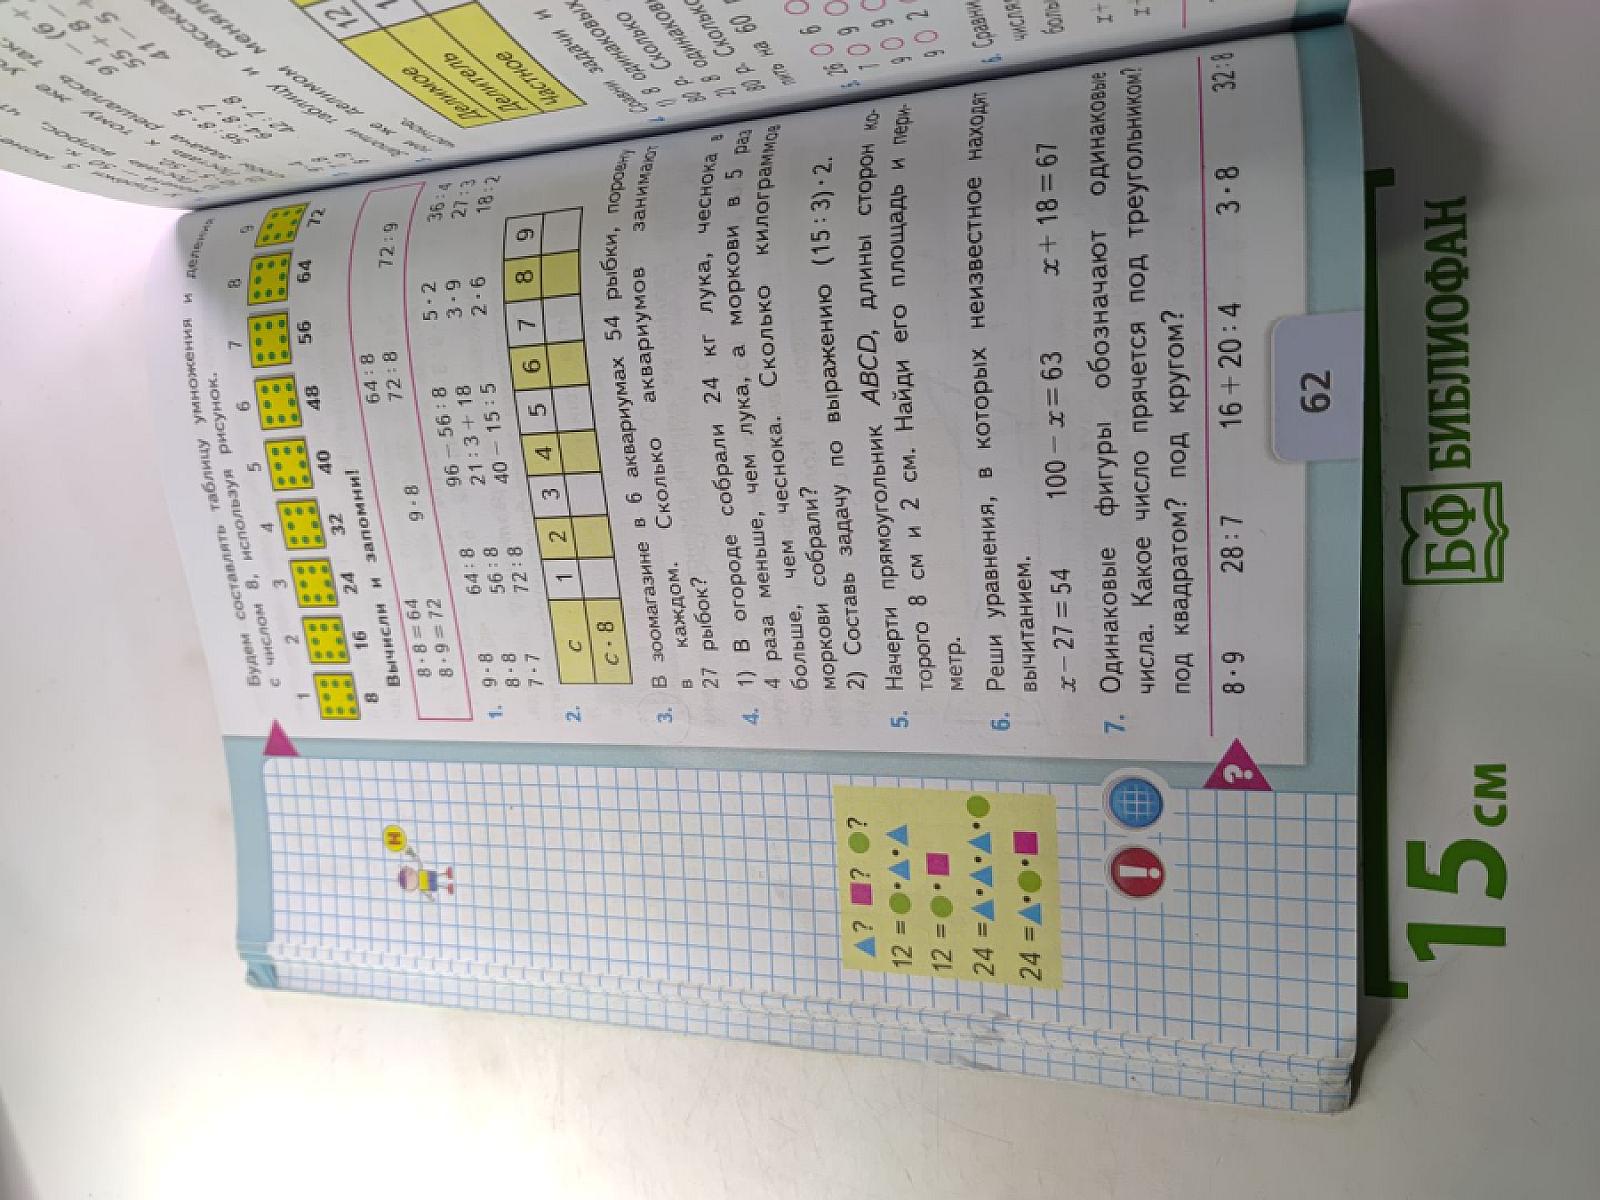 Будем составлять таблицу умножения и деления
с числом 8, используя рисунок.
1 2 3 4 5 6 7 8 9
8 16 24 32 40 48 56 64 72
Вычисли и запомни!
8 · 8 = 64 9 · 8 64 : 8
8 · 9 = 72 72 : 8 72 : 9
1. 9 · 8 64 : 8 96 − 56 : 8 5 · 2 36 : 4
8 · 8 56 : 8 21 : 3 + 18 3 · 9 27 : 3
7 · 7 72 : 8 40 − 15 : 5 2 · 6 18 : 2
2. c 1 2 3 4 5 6 7 8 9
c · 8
3. В зоомагазине в 6 аквариумах 54 рыбки, поровну
в каждом. Сколько аквариумов занимают
27 рыбок?
4. 1) В огороде собрали 24 кг лука, чеснока в
4 раза меньше, чем лука, а моркови в 5 раз
больше, чем чеснока. Сколько килограммов
моркови собрали?
2) Составь задачу по выражению (15 : 3) · 2.
5. Начерти прямоугольник ABCD, длины сторон ко-
торого 8 см и 2 см. Найди его площадь и пери-
метр.
6. Реши уравнения, в которых неизвестное находят
вычитанием.
x − 27 = 54 100 − x = 63 x + 18 = 67
7. Одинаковые фигуры обозначают одинаковые
числа. Какое число прячется под треугольником?
под квадратом? под кругом?
8 · 9 28 : 7 16 + 20 : 4 3 · 8 32 : 8
62
Н
▲? ■? ●?
12 = ●·▲·▲
12 = ●·■
24 = ▲·▲·▲·●
24 = ▲·●·■
!
?
12
Делимое
Делитель
Частное
15 см
БФ БИБЛИОФАН